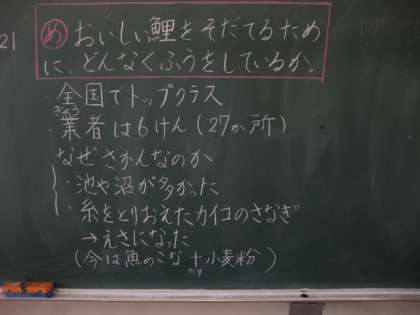 21
め おいしい鯉をそだてるため
に、どんなくふうをしているか。
・全国でトップクラス
ぎょう
・業者は6けん(27か所)
なぜさかんなのか
・池や沼が多かった
・糸をとりおえたカイコのさなぎ
→えさになった
(今は魚のこな+小麦粉)
たす